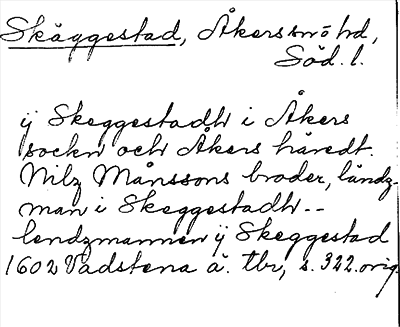 Skäggestad, Åkers sn o hd,
Söd. l.
ij Skeggestadh i Åkers
sockn och Åkers häredt.
Nilz Månssons broder, ländz-
man i Skeggestadh --
lendzmannen ij Skeggestad
1602 Vadstena ä. tbr, s. 322. orig.